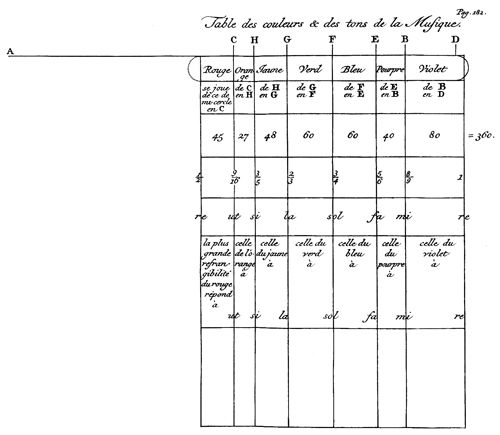 Pag. 182.
Table des couleurs & des tons de la Musique.
C H G F E B D
A
Rouge Oran ge Jaune Verd Bleu Pourpre Violet
se joue de ce de mi-cercle en C
de C en H
de H en G
de G en F
de F en E
de E en B
de B en D
45 27 48 60 60 40 80 = 360.
1/2 9/16 3/5 2/3 3/4 5/6 8/9 1
re ut si la sol fa mi re
la plus grande refran gibilité du rouge répond à
celle de l'o range à
celle du jaune à
celle du verd à
celle du bleu à
celle du pourpre à
celle du violet à
ut si la sol fa mi re